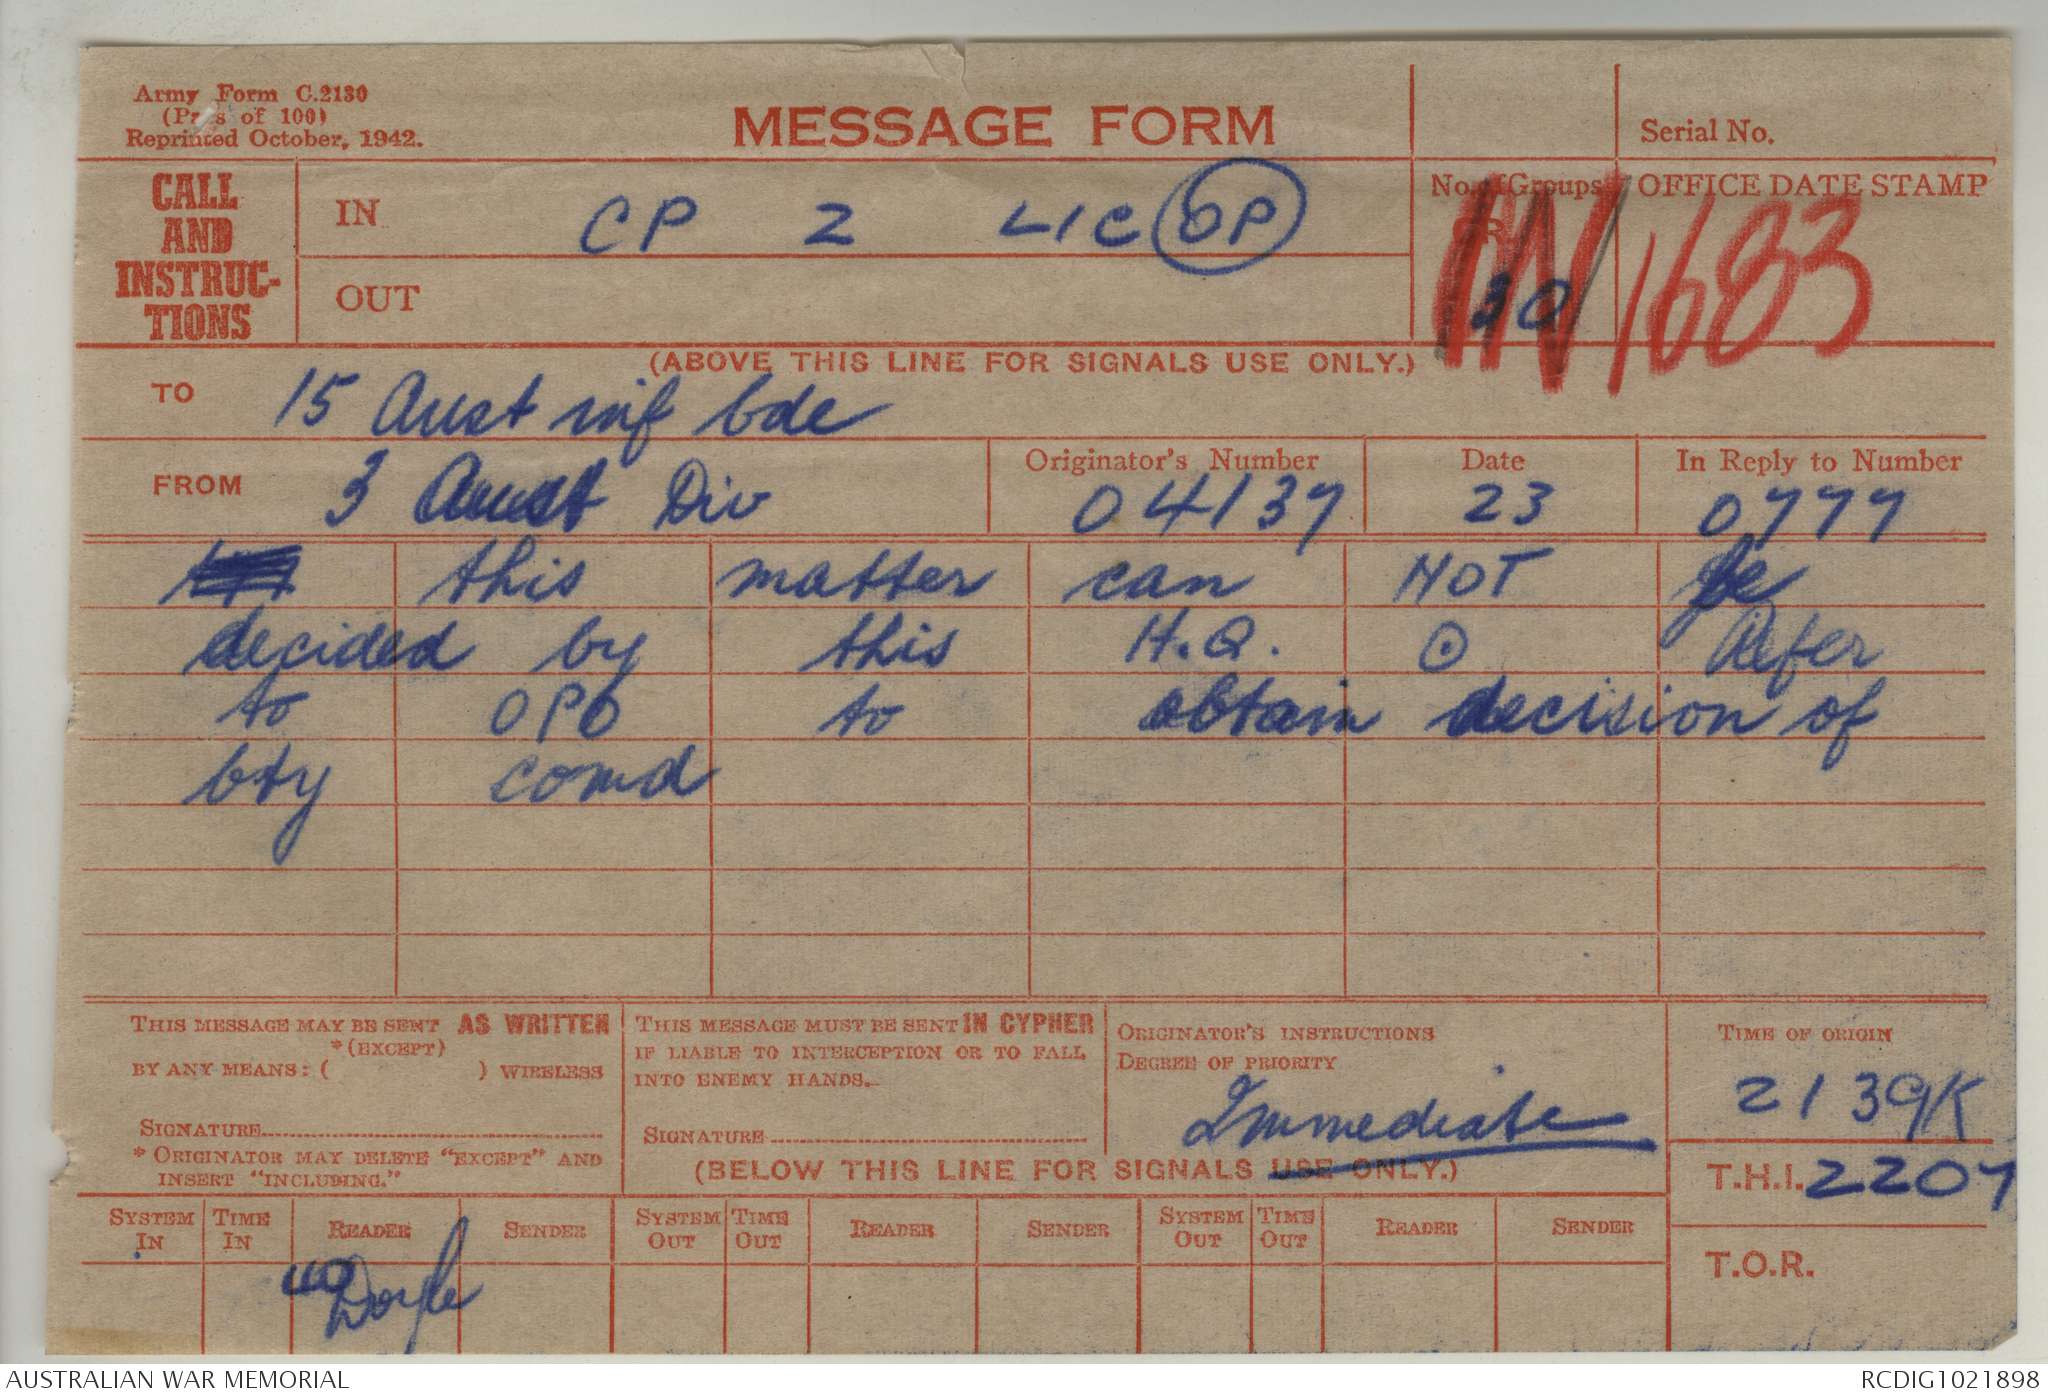 Army Form C.2130
(Pads of 100)
Reprinted October, 1942.
MESSAGE FORM
Serial No.
CALL AND INSTRUC-TIONS
IN CP 2 LIC OP
No. of Groups
GR
30
OFFICE DATE STAMP
IN/1683
OUT
(ABOVE THIS LINE FOR SIGNALS USE ONLY.)
TO 15 Aust inf bde
FROM 3 Aust Div
Originator's Number 04137
Date 23
In Reply to Number 0777
this matter can NOT be
decided by this H.Q. ⊙ Refer
to OPO to obtain decision of
bty comd
THIS MESSAGE MAY BE SENT AS WRITTEN
*(EXCEPT)
BY ANY MEANS: ( ) WIRELESS
SIGNATURE
* ORIGINATOR MAY DELETE "EXCEPT" AND
INSERT "INCLUDING."
THIS MESSAGE MUST BE SENT IN CYPHER
IF LIABLE TO INTERCEPTION OR TO FALL
INTO ENEMY HANDS.
SIGNATURE
ORIGINATOR'S INSTRUCTIONS
DEGREE OF PRIORITY
Immediate
TIME OF ORIGIN
2139K
(BELOW THIS LINE FOR SIGNALS USE ONLY.)
T.H.I. 2207
SYSTEM IN TIME IN READER SENDER SYSTEM OUT TIME OUT READER SENDER SYSTEM OUT TIME OUT READER SENDER
Doyle
T.O.R.
AUSTRALIAN WAR MEMORIAL
RCDIG1021898